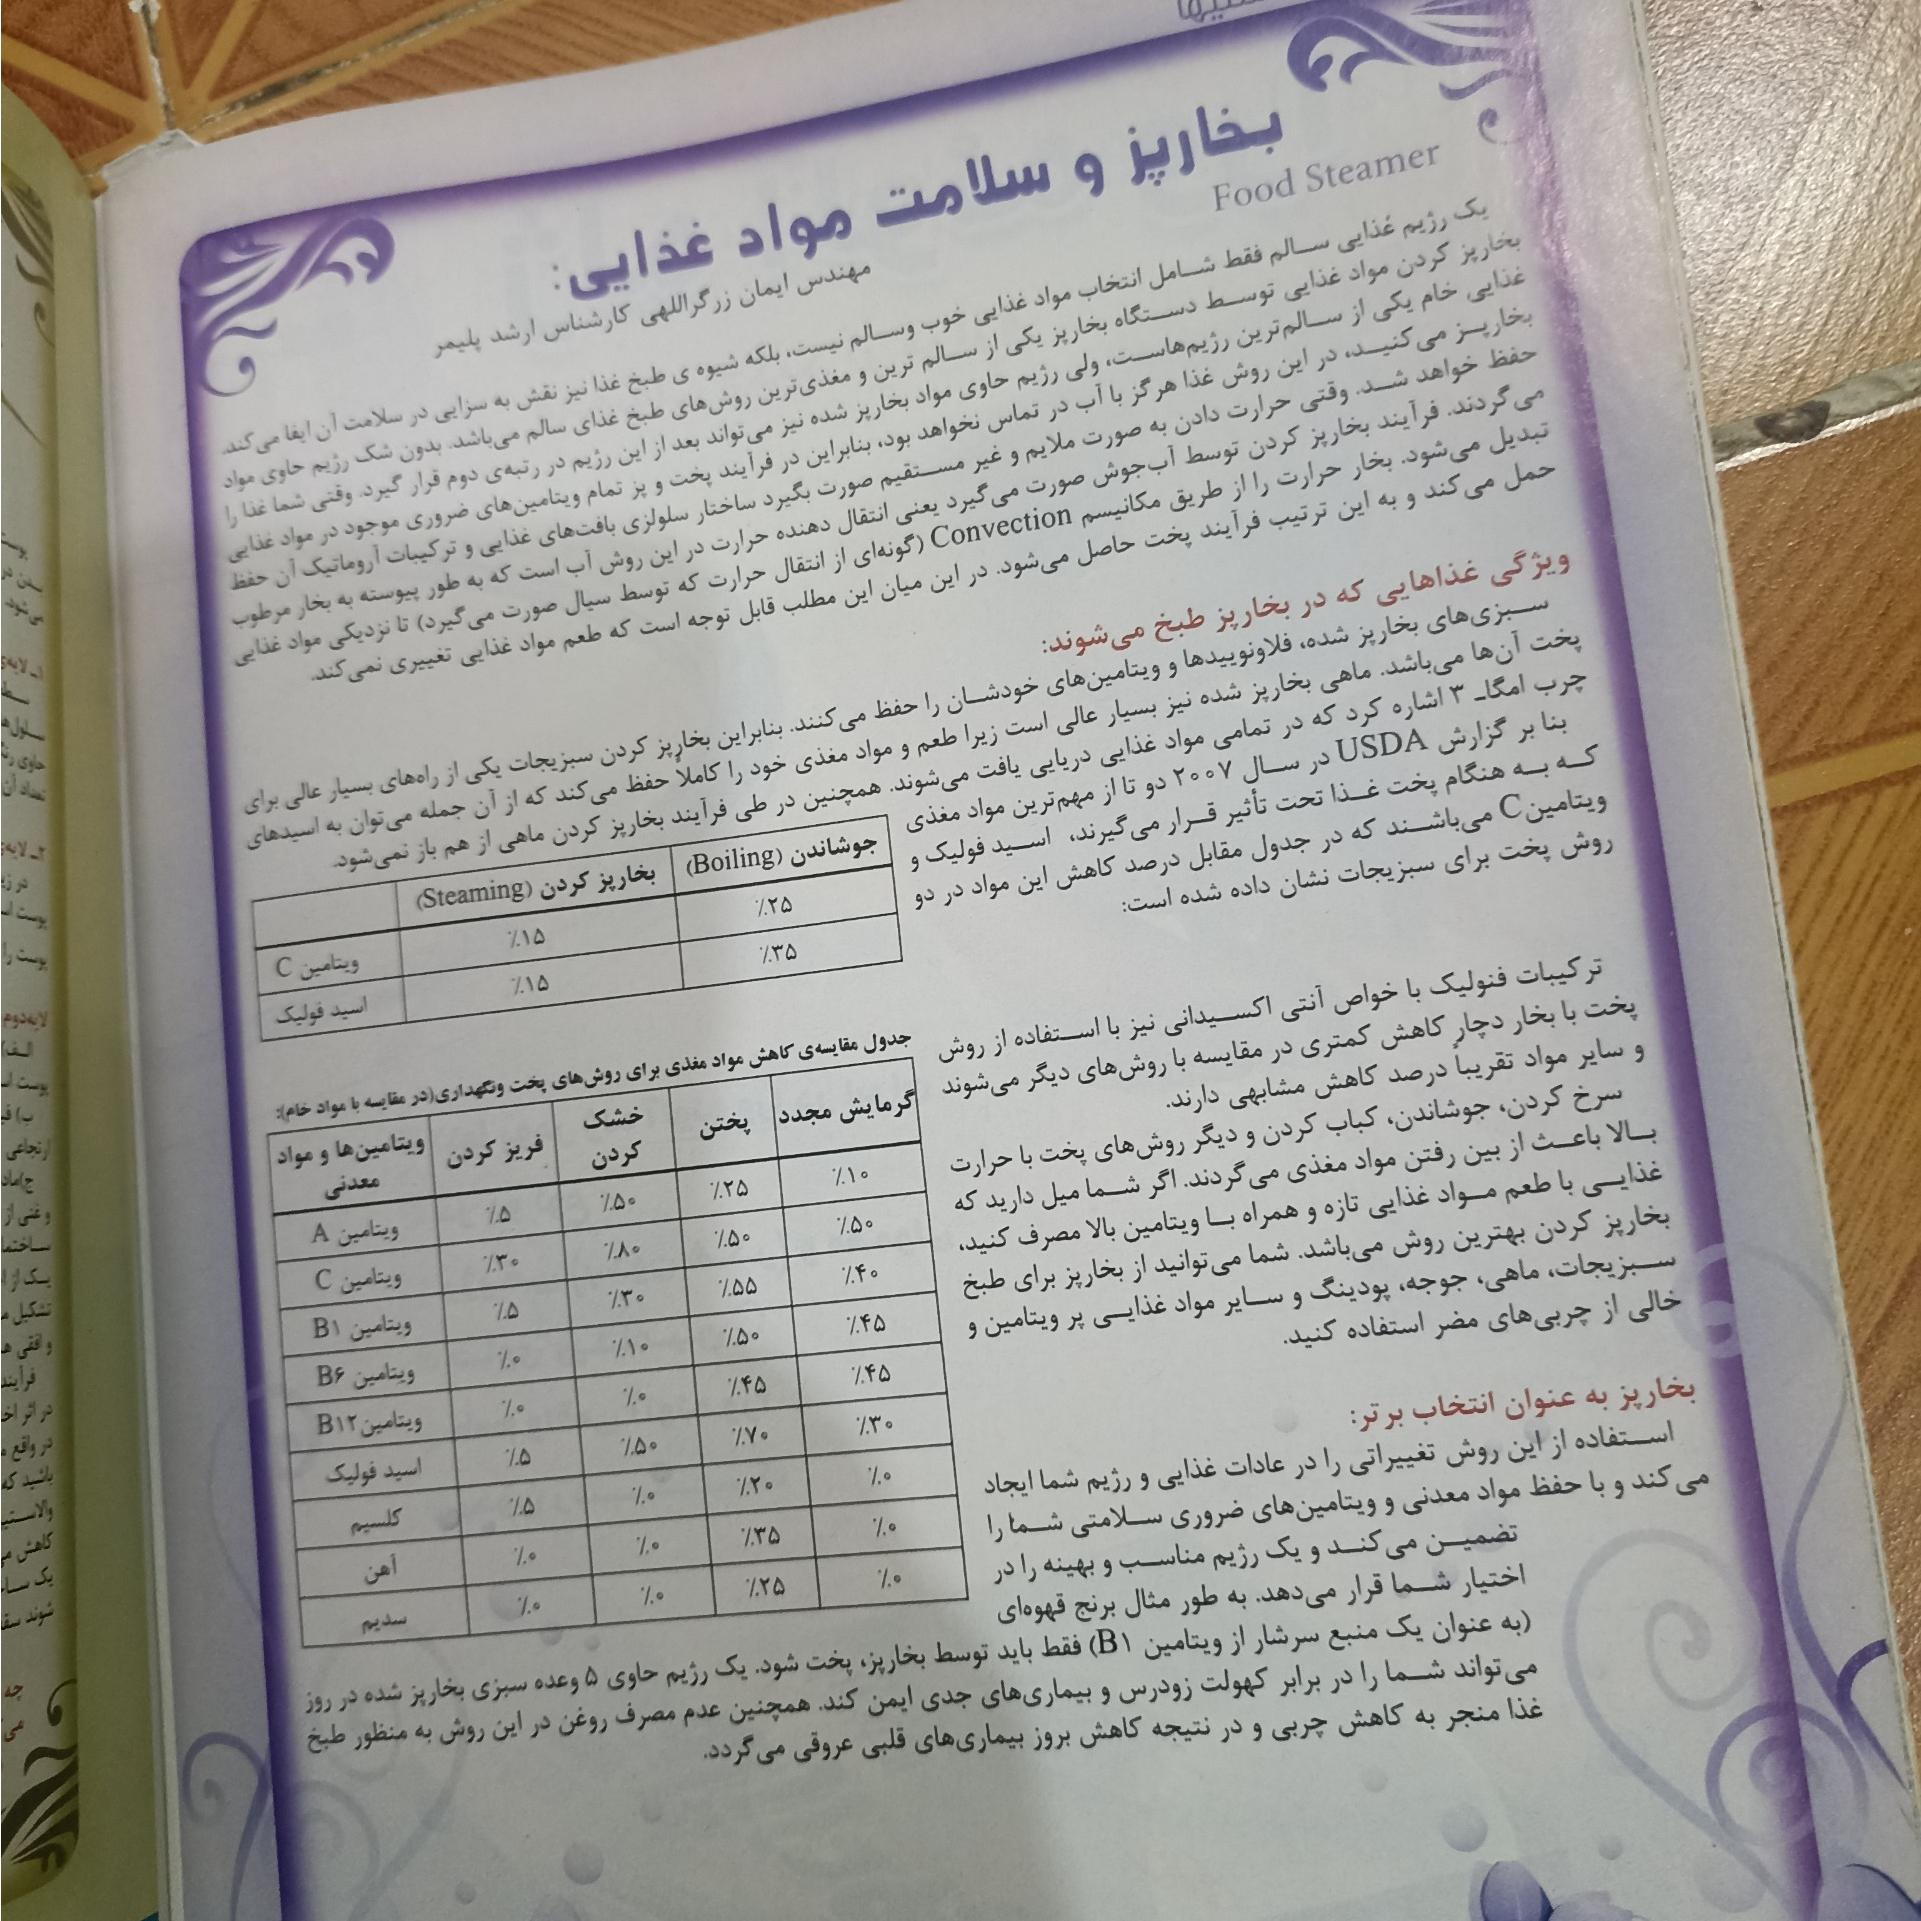 بخارپز و سلامت مواد غذایی:
Food Steamer
مهندس ایمان زرگراللهی کارشناس ارشد پلیمر
یک رژیم غذایی سالم فقط شامل انتخاب مواد غذایی خوب وسالم نیست، بلکه شیوه ی طبخ غذا نیز نقش به سزایی در سلامت آن ایفا می‌کند.
بخارپز کردن مواد غذایی توسط دستگاه بخارپز یکی از سالم ترین و مغذی‌ترین روش‌های طبخ غذای سالم می‌باشد. بدون شک رژیم حاوی مواد
غذایی خام یکی از سالم‌ترین رژیم‌هاست، ولی رژیم حاوی مواد بخارپز شده نیز می‌تواند بعد از این رژیم در رتبه‌ی دوم قرار گیرد. وقتی شما غذا را
بخارپز می‌کنید، در این روش غذا هرگز با آب در تماس نخواهد بود، بنابراین در فرآیند پخت و پز تمام ویتامین‌های ضروری موجود در مواد غذایی
حفظ خواهد شد. وقتی حرارت دادن به صورت ملایم و غیر مستقیم صورت بگیرد ساختار سلولزی بافت‌های غذایی و ترکیبات آروماتیک آن حفظ
می‌گردند. فرآیند بخارپز کردن توسط آب‌جوش صورت می‌گیرد یعنی انتقال دهنده حرارت در این روش آب است که به طور پیوسته به بخار مرطوب
تبدیل می‌شود. بخار حرارت را از طریق مکانیسم Convection (گونه‌ای از انتقال حرارت که توسط سیال صورت می‌گیرد) تا نزدیکی مواد غذایی
حمل می‌کند و به این ترتیب فرآیند پخت حاصل می‌شود. در این میان این مطلب قابل توجه است که طعم مواد غذایی تغییری نمی‌کند.
ویژگی غذاهایی که در بخارپز طبخ می‌شوند:
سبزی‌های بخارپز شده، فلاونوییدها و ویتامین‌های خودشان را حفظ می‌کنند. بنابراین بخارپز کردن سبزیجات یکی از راه‌های بسیار عالی برای
پخت آن‌ها می‌باشد. ماهی بخارپز شده نیز بسیار عالی است زیرا طعم و مواد مغذی خود را کاملاً حفظ می‌کند که از آن جمله می‌توان به اسیدهای
چرب امگا‌ـ ۳ اشاره کرد که در تمامی مواد غذایی دریایی یافت می‌شوند. همچنین در طی فرآیند بخارپز کردن ماهی از هم باز نمی‌شود.
بنا بر گزارش USDA در سال ۲۰۰۷ دو تا از مهم‌ترین مواد مغذی
که به هنگام پخت غذا تحت تأثیر قرار می‌گیرند، اسید فولیک و
ویتامین C می‌باشند که در جدول مقابل درصد کاهش این مواد در دو
روش پخت برای سبزیجات نشان داده شده است:
جوشاندن (Boiling) بخارپز کردن (Steaming)
٪۲۵ ٪۱۵ ویتامین C
٪۳۵ ٪۱۵ اسید فولیک
ترکیبات فنولیک با خواص آنتی اکسیدانی نیز با استفاده از روش
پخت با بخار دچار کاهش کمتری در مقایسه با روش‌های دیگر می‌شوند
و سایر مواد تقریباً درصد کاهش مشابهی دارند.
سرخ کردن، جوشاندن، کباب کردن و دیگر روش‌های پخت با حرارت
بالا باعث از بین رفتن مواد مغذی می‌گردند. اگر شما میل دارید که
غذایی با طعم مواد غذایی تازه و همراه با ویتامین بالا مصرف کنید،
بخارپز کردن بهترین روش می‌باشد. شما می‌توانید از بخارپز برای طبخ
سبزیجات، ماهی، جوجه، پودینگ و سایر مواد غذایی پر ویتامین و
خالی از چربی‌های مضر استفاده کنید.
جدول مقایسه‌ی کاهش مواد مغذی برای روش‌های پخت ونگهداری(در مقایسه با مواد خام):
گرمایش مجدد پختن خشک کردن فریز کردن ویتامین‌ها و مواد معدنی
٪۱۰ ٪۲۵ ٪۵۰ ٪۵ ویتامین A
٪۵۰ ٪۵۰ ٪۸۰ ٪۳۰ ویتامین C
٪۴۰ ٪۵۵ ٪۳۰ ٪۵ ویتامین B۱
٪۴۵ ٪۵۰ ٪۱۰ ٪۰ ویتامین B۶
٪۴۵ ٪۴۵ ٪۰ ٪۰ ویتامین B۱۲
٪۳۰ ٪۷۰ ٪۵۰ ٪۵ اسید فولیک
٪۰ ٪۲۰ ٪۰ ٪۵ کلسیم
٪۰ ٪۳۵ ٪۰ ٪۰ آهن
٪۰ ٪۲۵ ٪۰ ٪۰ سدیم
بخارپز به عنوان انتخاب برتر:
استفاده از این روش تغییراتی را در عادات غذایی و رژیم شما ایجاد
می‌کند و با حفظ مواد معدنی و ویتامین‌های ضروری سلامتی شما را
تضمین می‌کند و یک رژیم مناسب و بهینه را در
اختیار شما قرار می‌دهد. به طور مثال برنج قهوه‌ای
(به عنوان یک منبع سرشار از ویتامین B۱) فقط باید توسط بخارپز، پخت شود. یک رژیم حاوی ۵ وعده سبزی بخارپز شده در روز
می‌تواند شما را در برابر کهولت زودرس و بیماری‌های جدی ایمن کند. همچنین عدم مصرف روغن در این روش به منظور طبخ
غذا منجر به کاهش چربی و در نتیجه کاهش بروز بیماری‌های قلبی عروقی می‌گردد.